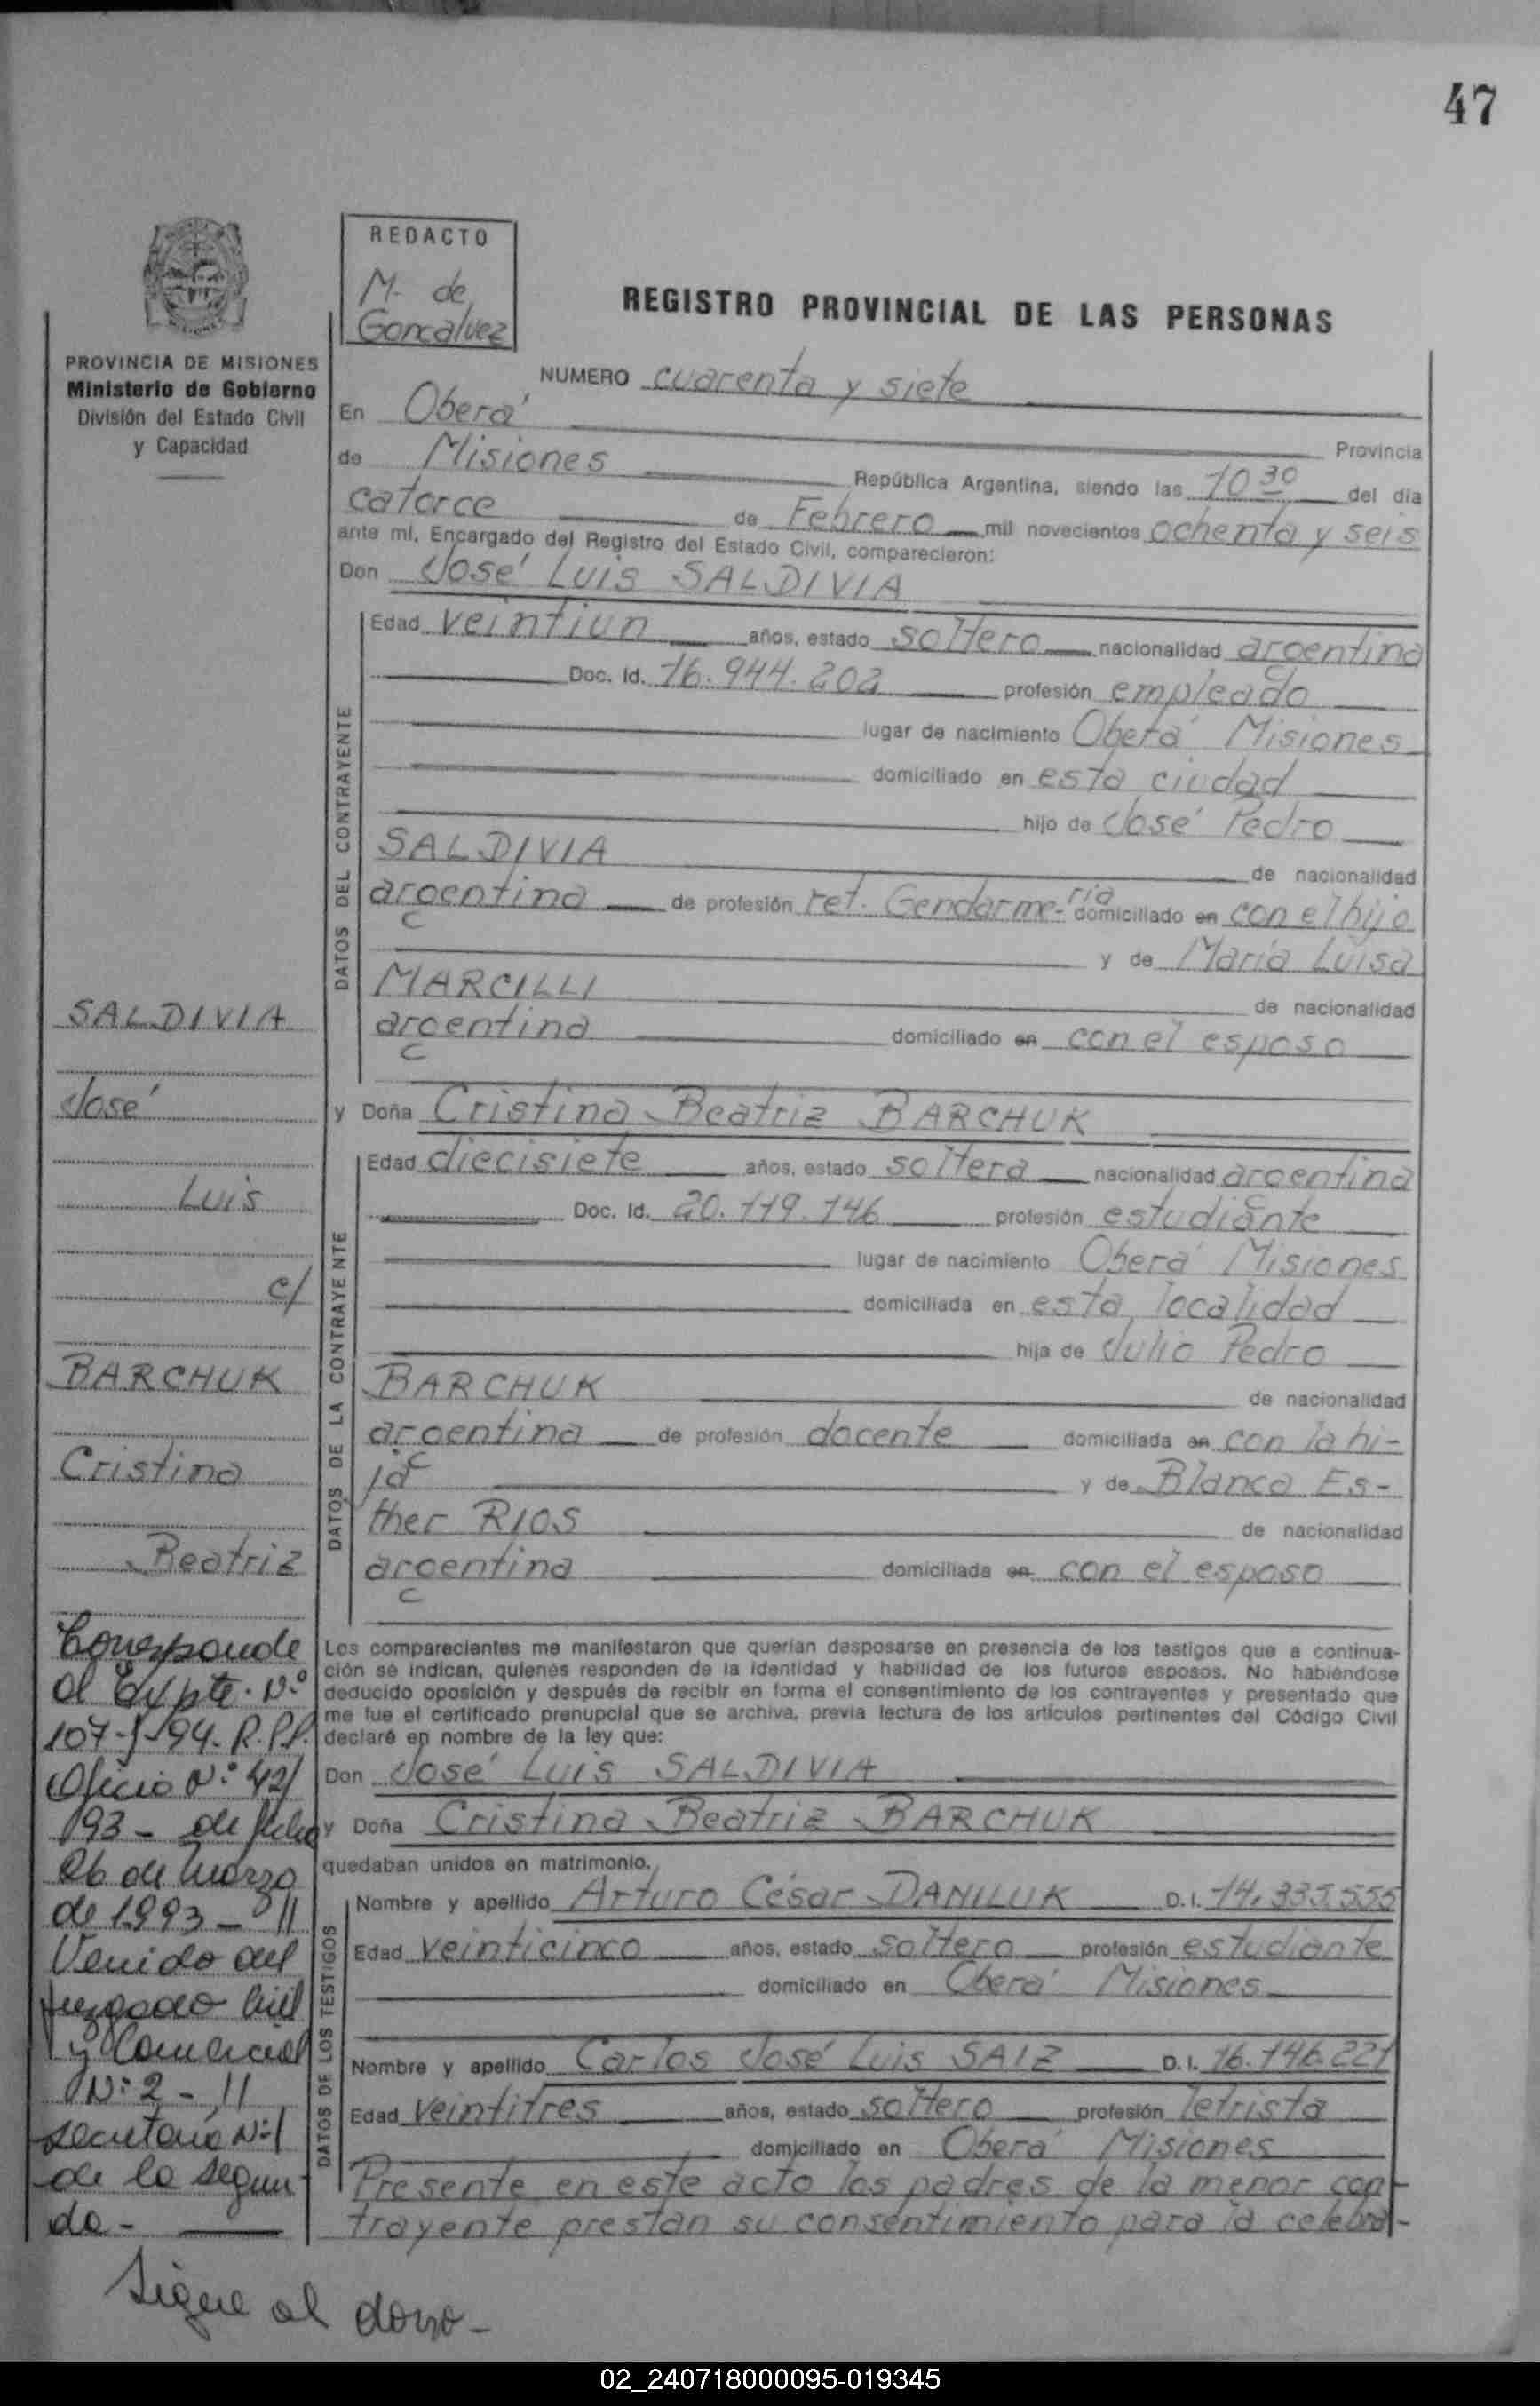 47
REDACTO
M. de
Goncalvez
REGISTRO PROVINCIAL DE LAS PERSONAS
PROVINCIA DE MISIONES
Ministerio de Gobierno
División del Estado Civil
y Capacidad
NUMERO cuarenta y siete
En Oberá Provincia
de Misiones República Argentina, siendo las 10 30 del día
catorce de Febrero mil novecientos ochenta y seis
ante mí, Encargado del Registro del Estado Civil, comparecieron:
Don José Luis SALDIVIA
DATOS DEL CONTRAYENTE
Edad veintiun años, estado soltero nacionalidad argentina
Doc. Id. 16.944.202 profesión empleado
lugar de nacimiento Oberá Misiones
domiciliado en esta ciudad
hijo de José Pedro
SALDIVIA de nacionalidad
argentina de profesión ret. Gendarme-ría domiciliado en con el hijo
y de María Luisa
MARCILLI de nacionalidad
argentina domiciliado en con el esposo
y Doña Cristina Beatriz BARCHUK
DATOS DE LA CONTRAYENTE
Edad diecisiete años, estado soltera nacionalidad argentina
Doc. Id. 20.119.146 profesión estudiante
lugar de nacimiento Oberá Misiones
domiciliada en esta localidad
hija de Julio Pedro
BARCHUK de nacionalidad
argentina de profesión docente domiciliada en con la hi-
ja y de Blanca Es-
ther RIOS de nacionalidad
argentina domiciliada en con el esposo
Los comparecientes me manifestaron que querían desposarse en presencia de los testigos que a continua-
ción se indican, quienes responden de la identidad y habilidad de los futuros esposos. No habiéndose
deducido oposición y después de recibir en forma el consentimiento de los contrayentes y presentado que
me fue el certificado prenupcial que se archiva, previa lectura de los artículos pertinentes del Código Civil
declaré en nombre de la ley que:
Don José Luis SALDIVIA
y Doña Cristina Beatriz BARCHUK
quedaban unidos en matrimonio.
DATOS DE LOS TESTIGOS
Nombre y apellido Arturo César DANILUK D.I. 14.335.555
Edad veinticinco años, estado soltero profesión estudiante
domiciliado en Oberá Misiones
Nombre y apellido Carlos José Luis SAIZ D.I. 16.146.221
Edad veintitres años, estado soltero profesión letrista
domiciliado en Oberá Misiones
Presente en este acto los padres de la menor con-
trayente prestan su consentimiento para la celebra-
SALDIVIA
José
Luis
c/
BARCHUK
Cristina
Beatriz
Corresponde
al Expte. Nº
107-J-94-R.P.P.
Oficio Nº 42/
93 - de fecha
26 de Marzo
de 1993 - //
Venido del
Juzgado Civil
y Comercial
Nº 2 - //
Secretaría Nº 1
de la segun-
da -
Sigue al dorso -
02_240718000095-019345